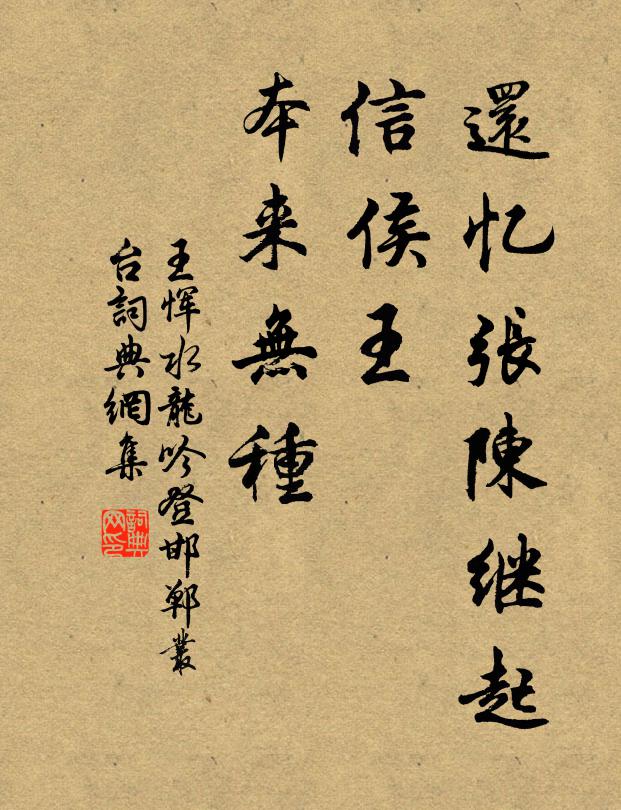 還忆張陳継起
信侯王
本来無種
王恽水龍吟登邯郸叢
台詞典網集
詞典
网印